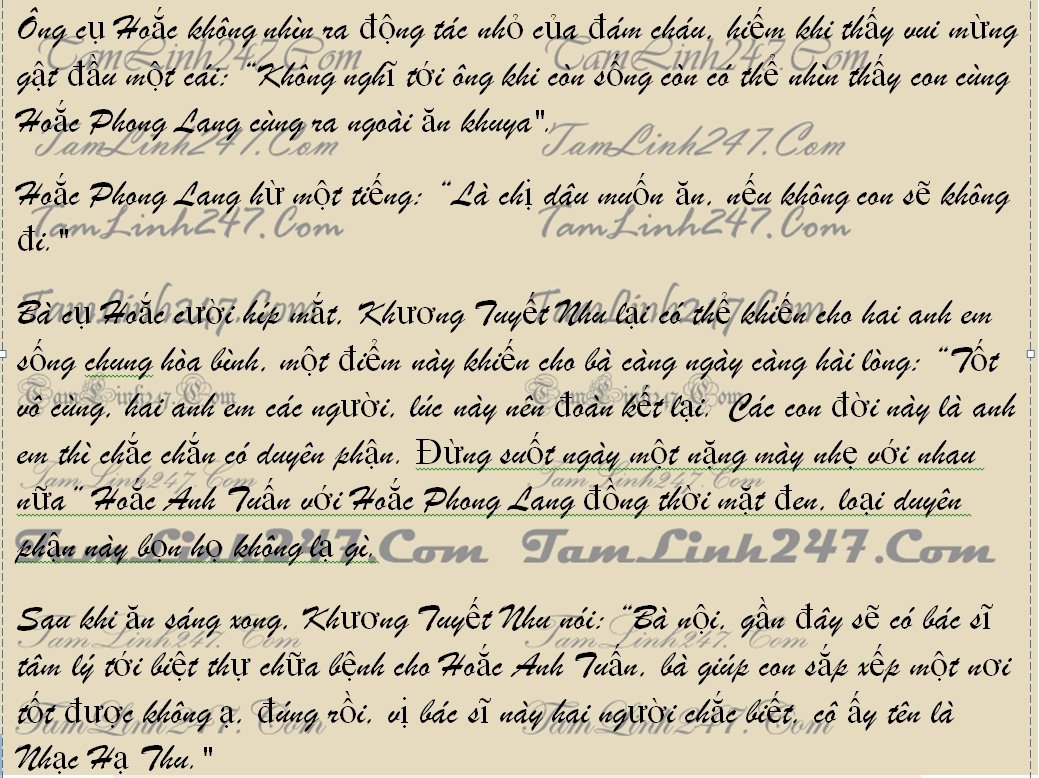 Ông cụ Hoắc không nhìn ra động tác nhỏ của đám cháu, hiếm khi thấy vui mừng
gật đầu một cái: “Không nghĩ tới ông khi còn sống còn có thể nhìn thấy con cùng
Hoắc Phong Lang cùng ra ngoài ăn khuya".
Hoắc Phong Lang hừ một tiếng: “Là chị dâu muốn ăn, nếu không con sẽ không
đi."
Bà cụ Hoắc cười híp mắt, Khương Tuyết Nhu lại có thể khiến cho hai anh em
sống chung hòa bình, một điểm này khiến cho bà càng ngày càng hài lòng: “Tốt
vô cùng, hai anh em các người, lúc này nên đoàn kết lại. Các con đời này là anh
em thì chắc chắn có duyên phận. Đừng suốt ngày một nặng mày nhẹ với nhau
nữa” Hoắc Anh Tuấn với Hoắc Phong Lang đồng thời mặt đen, loại duyên
phận này bọn họ không lạ gì.
Sau khi ăn sáng xong, Khương Tuyết Nhu nói: “Bà nội, gần đây sẽ có bác sĩ
tâm lý tới biệt thự chữa bệnh cho Hoắc Anh Tuấn, bà giúp con sắp xếp một nơi
tốt được không ạ, đúng rồi, vị bác sĩ này hai người chắc biết, cô ấy tên là
Nhạc Hạ Thu."
TamLinh247.Com TamLinh247.Com
TamLinh247.Com TamLinh247.Com
TamLinh247.Com TamLinh247.Com
TamLinh247.Com TamLinh247.Com
TamLinh247.Com TamLinh247.Com
TamLinh247.Com TamLinh247.Com
TamLinh247.Com TamLinh247.Com
TamLinh247.Com TamLinh247.Com
TamLinh247.Com TamLinh247.Com